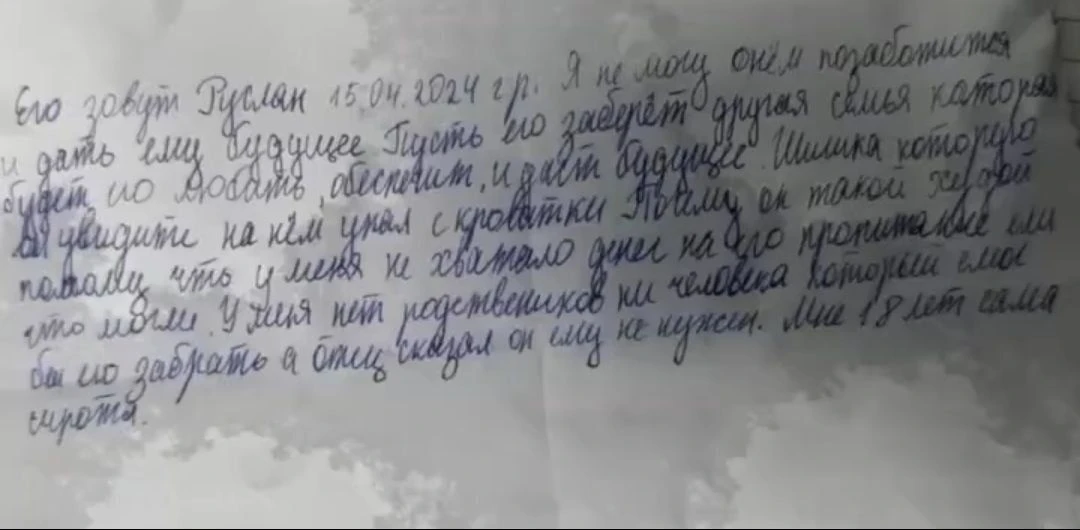 Его зовут Руслан 15.04.2024 г р. Я не могу онём позаботится
и дать ему будущее Пусть его заберёт другая семья каторая
будет его любать, обеспечит, и даст будущее. Шишка которую
вы увидите на нём упал с кроватки Почему он такой худой
потому что у меня не хватало денег на его пропитание ели
что могли. У меня нет родствеников ни человека который смог
бы его забрать а Отец сказал он ему не нужен. Мне 18 лет сама
сирота.